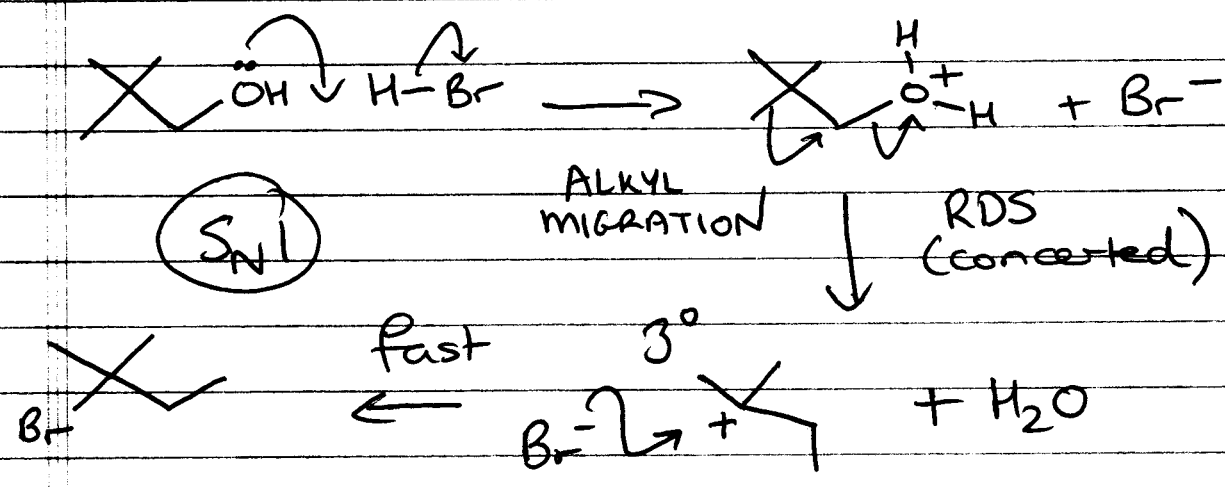 ÖH H-Br → H O+ -H + Br-
ALKYL MIGRATION
RDS (concerted)
SN1
Br ← fast Br- 3° + + H2O